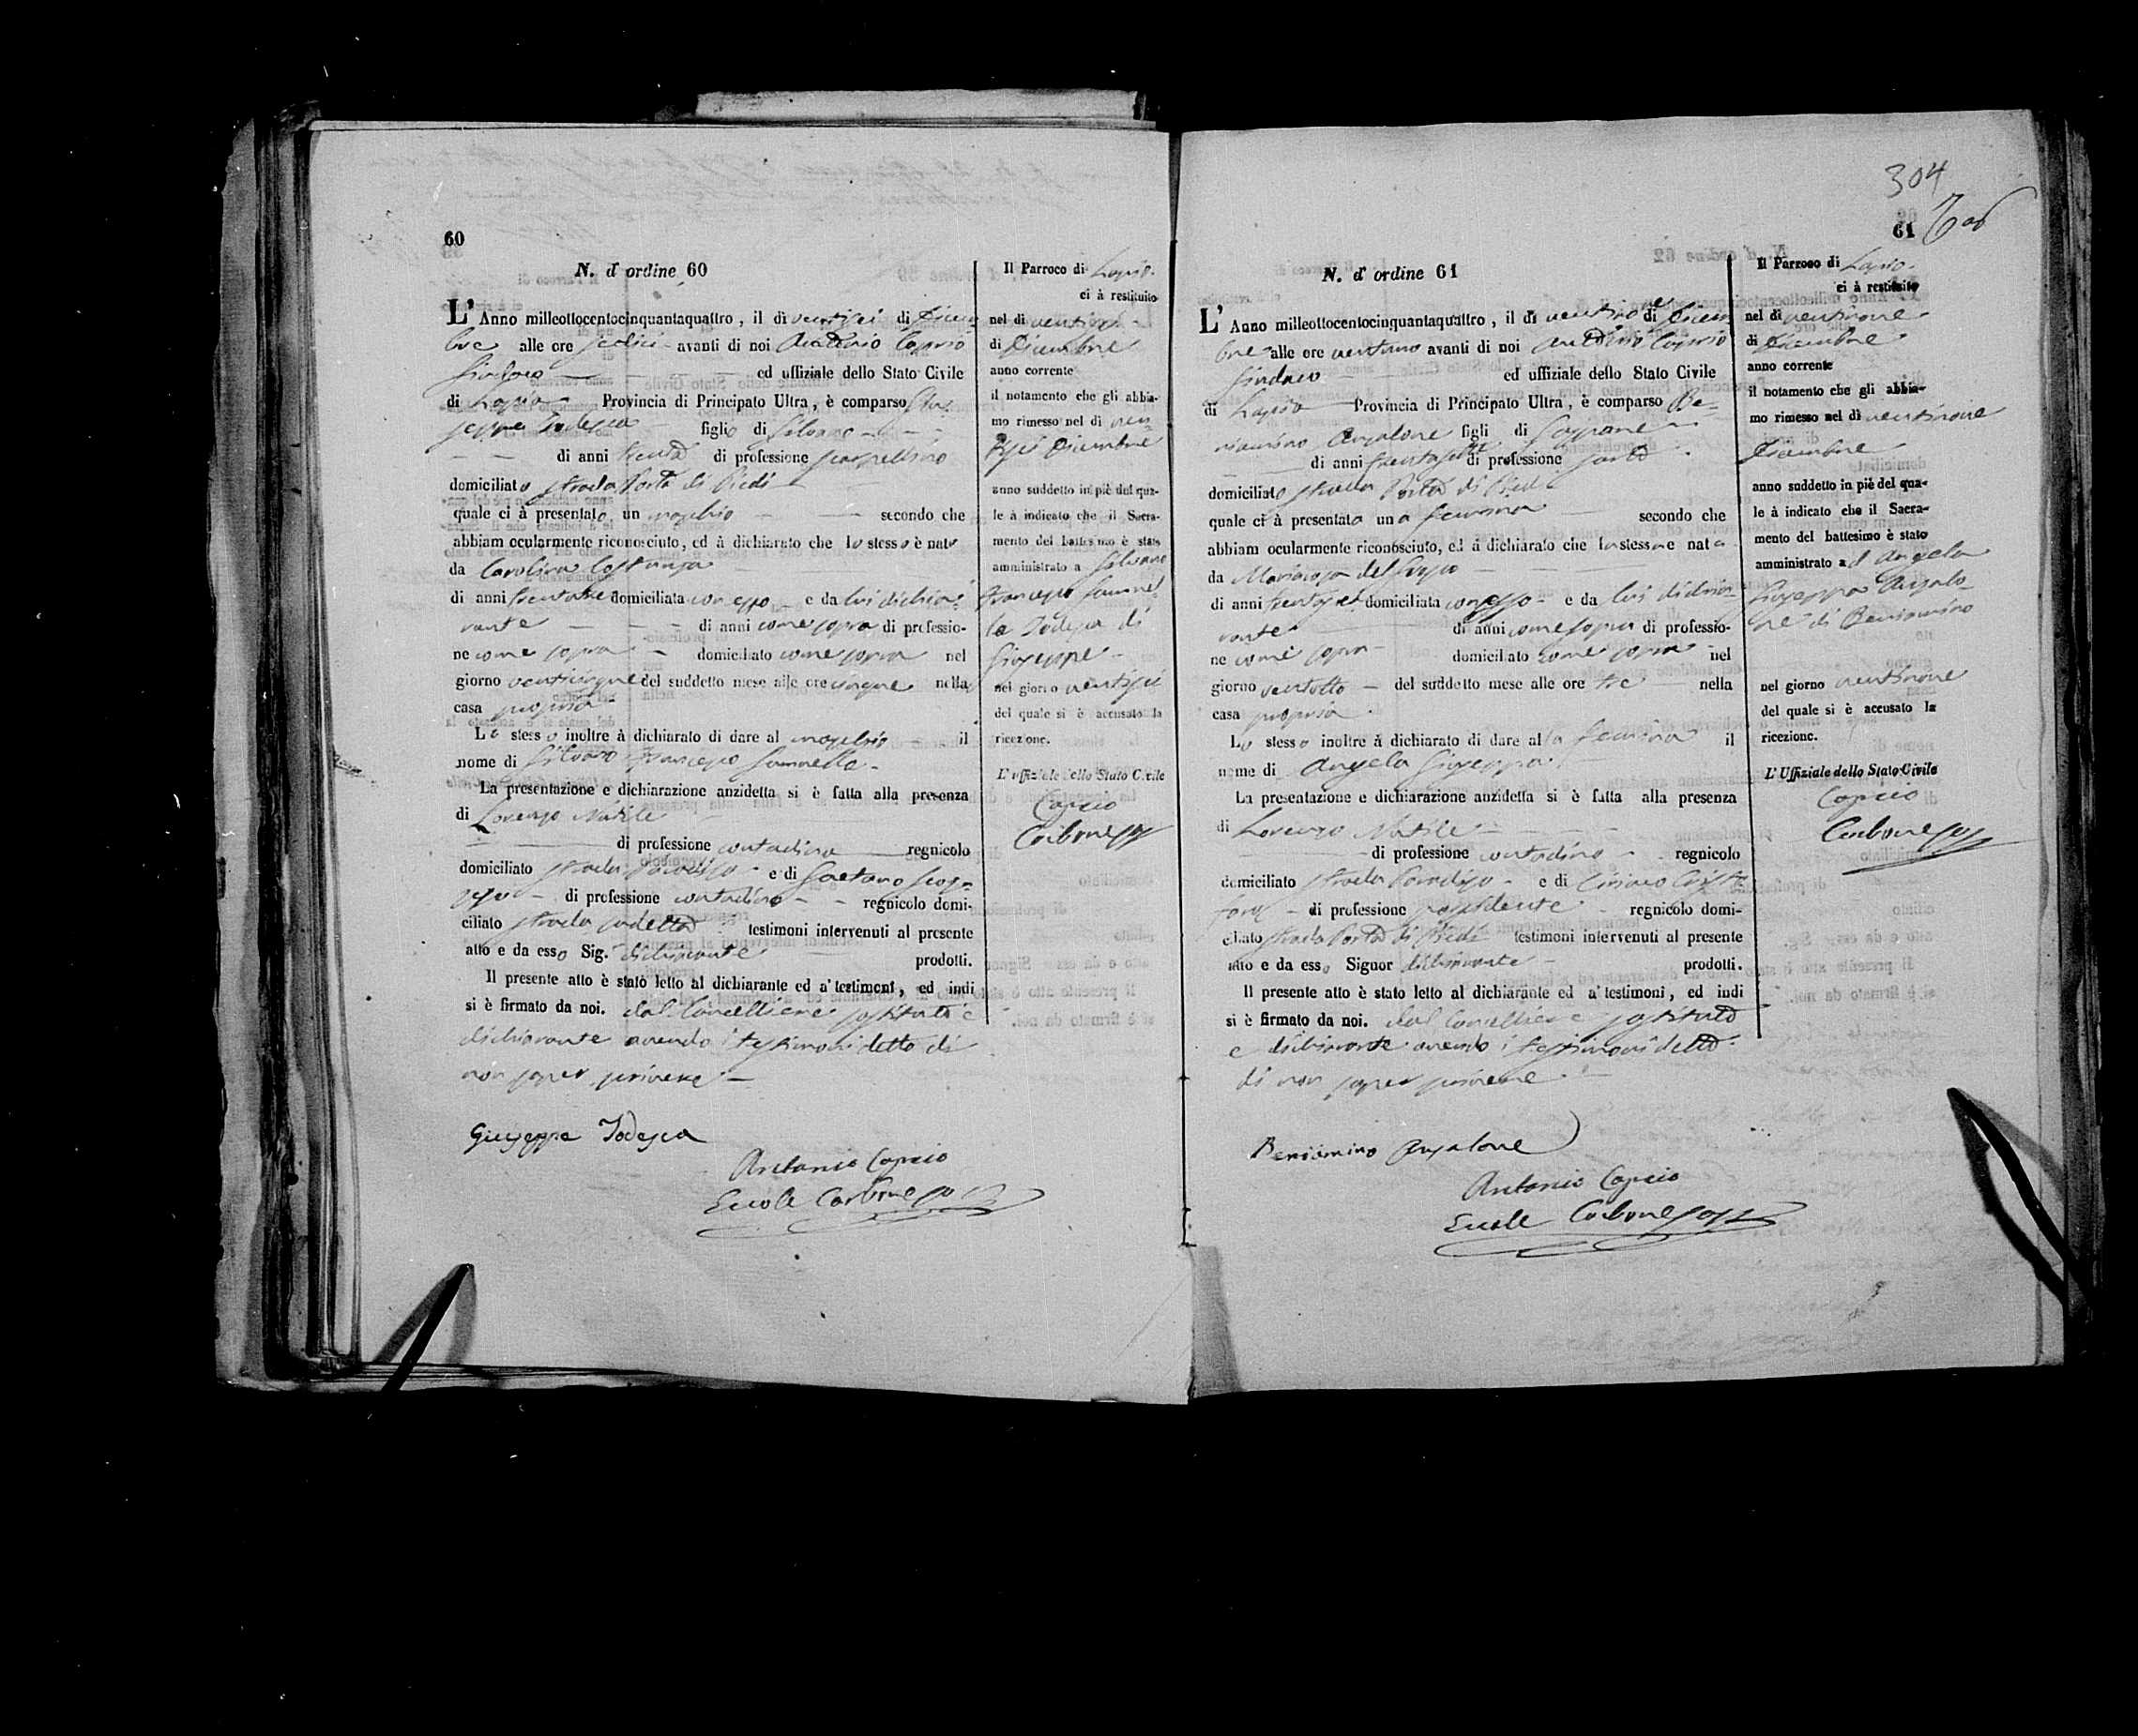 60
N. d' ordine 60
L' Anno millеottocentocinquantaquattro, il dì ventisei di Dicem-
bre alle ore sedici avanti di noi Antonio Caprio
Sindaco ed uffiziale dello Stato Civile
di Lapio Provincia di Principato Ultra, è comparso Giu-
seppe Todesca figlio di Silvano
di anni trenta di professione scarpellino
domiciliato strada Porta di Piedi
quale ci à presentato un maschio secondo che
abbiam ocularmente riconosciuto, ed à dichiarato che lo stesso è nato
da Carolina Costanza
di anni domiciliata con esso e da lui dichia-
rante di anni come sopra di professio-
ne come sopra domiciliato come sopra nel
giorno venticinque del suddetto mese alle ore cinque nella
casa propria
Lo stesso inoltre à dichiarato di dare al maschio il
nome di Silvano Francesco
La presentazione e dichiarazione anzidetta si è fatta alla presenza
di Lorenzo Nutile
di professione contadino regnicolo
domiciliato strada Paradiso e di Gaetano
di professione contadino regnicolo domi-
ciliato strada sudetta testimoni intervenuti al presente
atto e da esso Sig. dichiarante prodotti.
Il presente atto è stato letto al dichiarante ed a' testimoni, ed indi
si è firmato da noi. dal Cancelliere sostituto e
dichiarante avendo i testimoni detto di
non saper scrivere
Giuseppe Todesca
Antonio Caprio
Ercole Carbone
Il Parroco di Lapio
ci à restituito
nel dì ventisei
di Dicembre
anno corrente
il notamento che gli abbia-
mo rimesso nel dì ven-
tisei Dicembre
anno suddetto in piè del qua-
le à indicato che il Sacra-
mento del battesimo è stato
amministrato a Silvano
Francesco
Todesca di
Giuseppe
nel giorno ventisei
del quale si è accusato la
ricezione.
L'uffiziale dello Stato Civile
Caprio
Carbone
304
61
N. d' ordine 61
L' Anno milleottocentocinquantaquattro, il dì ventinove di Dicem-
bre alle ore ventuno avanti di noi Antonio Caprio
Sindaco ed uffiziale dello Stato Civile
di Lapio Provincia di Principato Ultra, è comparso Be-
niamino Anzalone figli di
di anni trentasette di professione sarto
domiciliato strada Porta di Piedi
quale ci à presentata una femina secondo che
abbiam ocularmente riconosciuto, ed à dichiarato che la stessa è nata
da Mariarosa del Grosso
di anni domiciliata con esso e da lui dichia-
rante di anni come sopra di professio-
ne come sopra domiciliato come sopra nel
giorno ventotto del suddetto mese alle ore tre nella
casa propria
Lo stesso inoltre à dichiarato di dare alla femina il
nome di Angela Giuseppa
La presentazione e dichiarazione anzidetta si è fatta alla presenza
di Lorenzo Nutile
di professione contadino regnicolo
domiciliato strada Paradiso e di Ciriaco Cristo-
faro di professione possidente regnicolo domi-
ciliato strada Porta di Piedi testimoni intervenuti al presente
atto e da esso Signor dichiarante prodotti.
Il presente atto è stato letto al dichiarante ed a' testimoni, ed indi
si è firmato da noi. dal Cancelliere sostituto
e dichiarante avendo i testimoni detto
di non saper scrivere
Beniamino Anzalone
Antonio Caprio
Ercole Carbone
Il Parroco di Lapio
ci à restituito
nel dì ventinove
di Dicembre
anno corrente
il notamento che gli abbia-
mo rimesso nel dì ventinove
Dicembre
anno suddetto in piè del qua-
le à indicato che il Sacra-
mento del battesimo è stato
amministrato ad Angela
Giuseppa Anzalo-
ne di Beniamino
nel giorno ventinove
del quale si è accusato la
ricezione.
L'Uffiziale dello Stato Civile
Caprio
Carbone